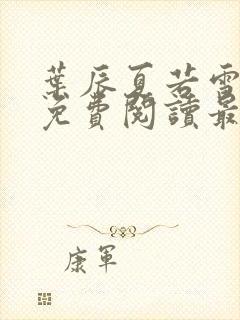 葉辰夏若雪
免費閱讀最
康軍